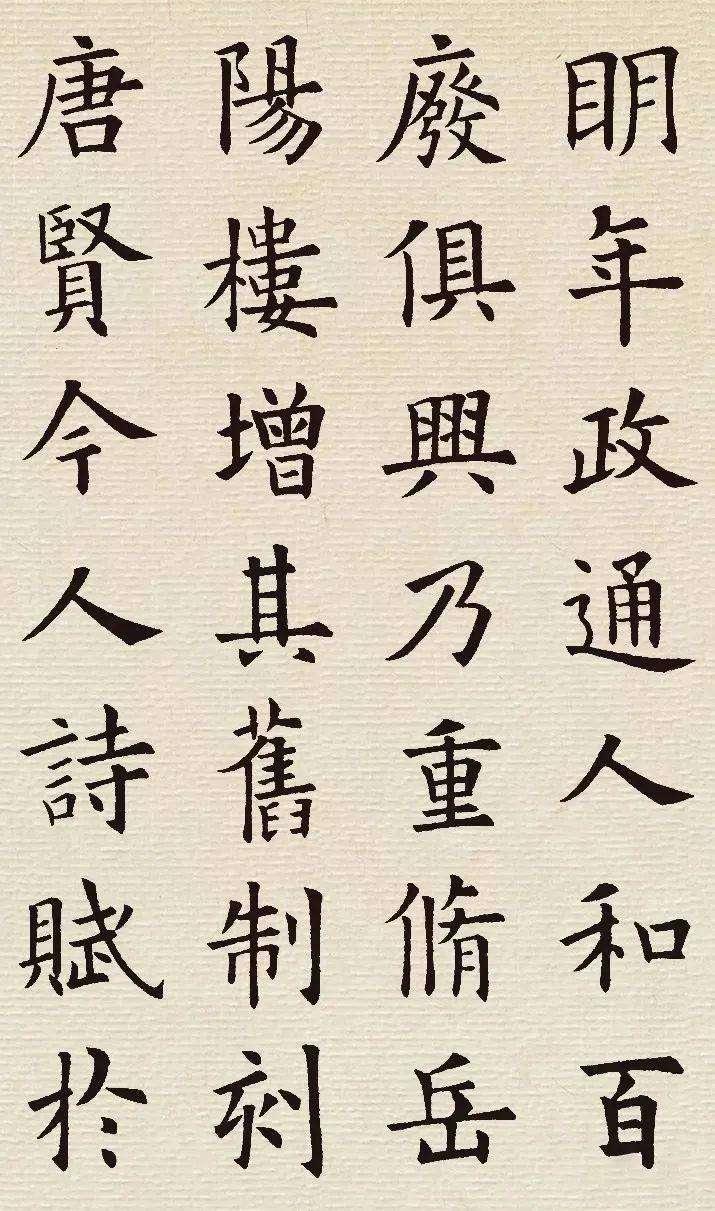 明年政通人和百
廢俱興乃重脩岳
陽樓增其舊制刻
唐賢今人詩賦於